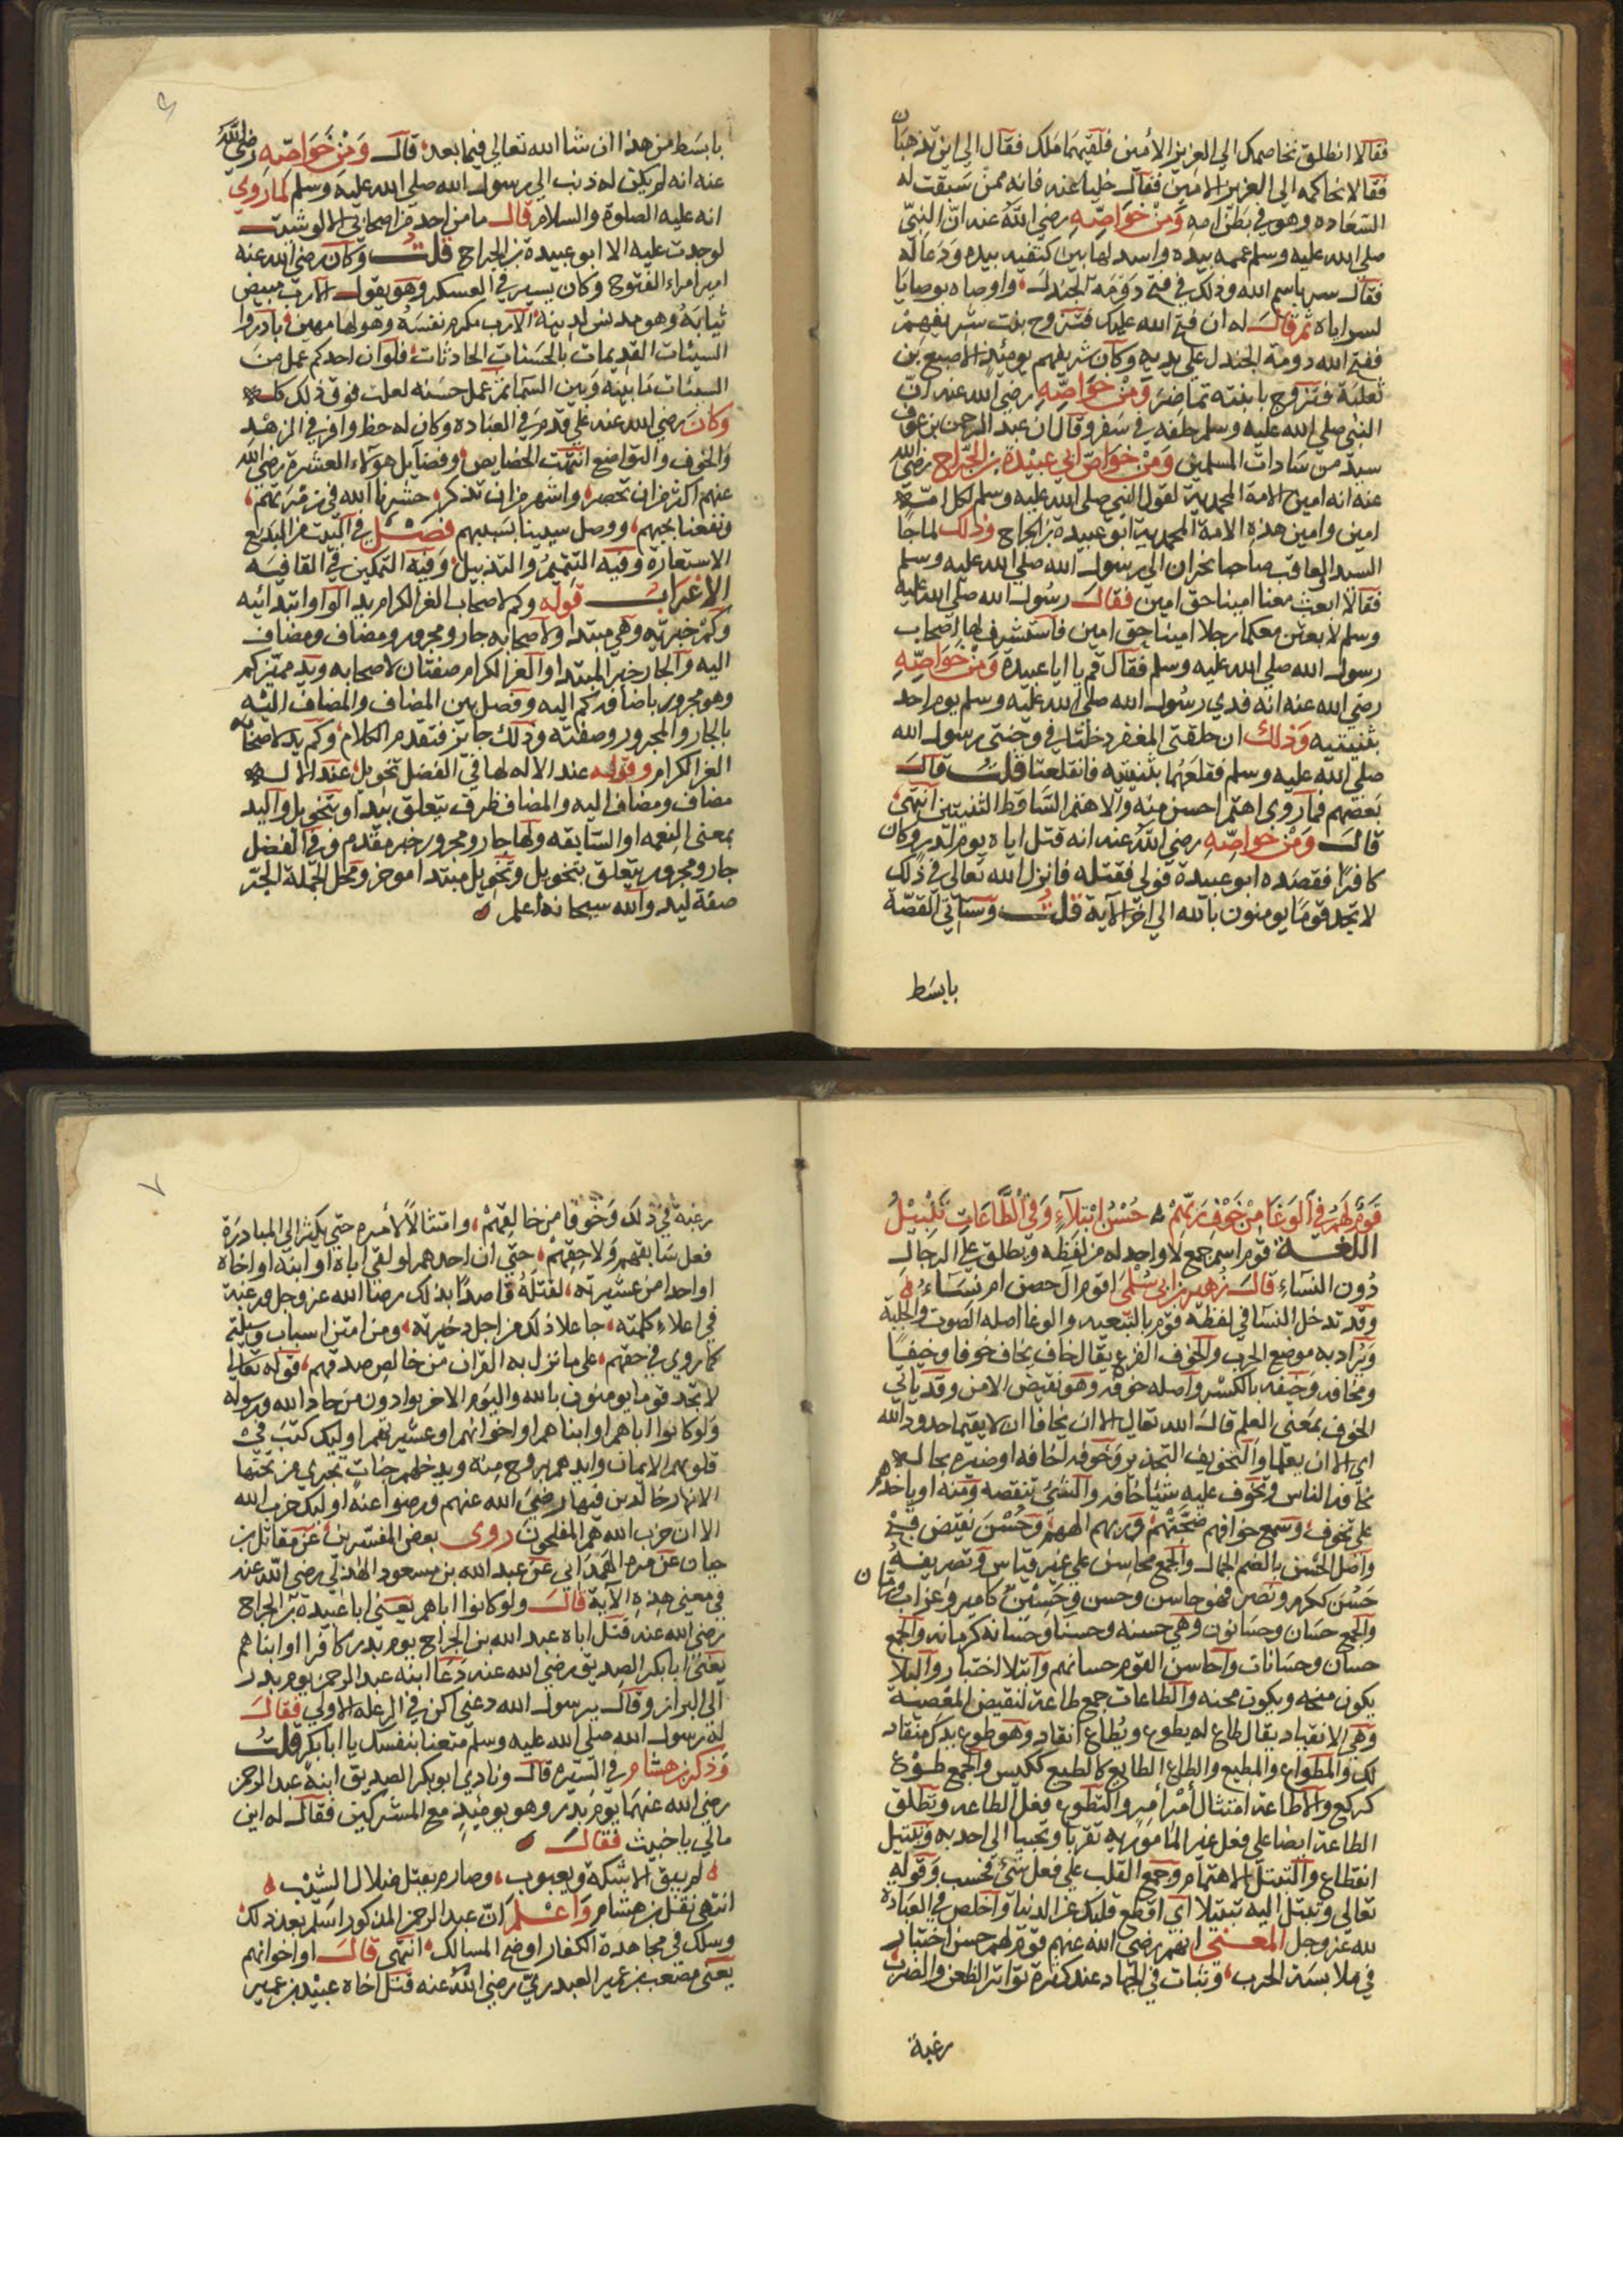 فقالا انطلق نخاصمك الي العزيز الامين فلقيهما ملك فقال الي اين تذهبان
فقالا نحاكمه الي العزيز الامين فقال خليا عنه فانه ممن سبقت له
السعاده وهو في بطن امه ومن خواصه رضي الله عنه ان النبي
صلي الله عليه وسلم عممه بيده واسدلها بين كتفيه بيده ودعا له
فقال سر باسم الله وذلك في فتح دومة الجندل، واوصاه بوصايا
لسراياه ثم قال له ان فتح الله عليك فتزوج بنت شريفهم
ففتح الله دومة الجندل علي يديه وكان شريفهم يومئذ الاصبع بن
ثعلبة فتزوج بابنته تماضر ومن خواصه رضي الله عنه ان
النبي صلي الله عليه وسلم خلفه في سفر وقال ان عبد الرحمن بن عوف
سيد من سادات المسلمين ومن خواص ابي عبيدة بن الجراح رضي الله
عنه انه امين الامة المحمدية لقول النبي صلي الله عليه وسلم لكل امة
امين وامين هذه الامة المحمدية ابو عبيدة بن الجراح وذلك لما جا
السيد والعاقب صاحبا نجران الي رسول الله صلي الله عليه وسلم
فقالا ابعث معنا امينا حق امين فقال رسول الله صلي الله عليه
وسلم لابعثن معكما رجلا امينا حق امين فاستشرف لها اصحاب
رسول الله صلي الله عليه وسلم فقال قم يا ابا عبيدة ومن خواصه
رضي الله عنه انه فدي رسول الله صلي الله عليه وسلم يوم احد
بثنيتيه وذلك ان حلقتي المغفر دخلتا في وجنتي رسول الله
صلي الله عليه وسلم فقلعهما بثنيتيه فانقلعتا قلت قال
بعضهم فما روي اهتم احسن منه والاهتم الساقط الثنيتين انتهي،
قال ومن خواصه رضي الله عنه انه قتل اباه يوم بدر وكان
كافرا فقصده ابو عبيدة فولي فقتله فانزل الله تعالي في ذلك
لا تجد قوما يومنون بالله الي اخر الآية قلت وستاتي القصة
بابسط
بابسط من هذا ان شا الله تعالي فيما بعد، قال ومن خواصه رضي الله
عنه انه لم يكن له ذنب الي رسول الله صلي الله عليه وسلم كما روي
انه عليه الصلوة والسلام قال ما من احد من اصحابي الا لو شيت
لوجدت عليه الا ابو عبيدة بن الجراح قلت وكان رضي الله عنه
امير امراء الفتوح وكان يسير في العسكر وهو يقول الا رب مبيض
ثيابه وهو مدنس لدينه الا رب مكرم نفسه وهو لها مهين بادروا
السيئات القديمات بالحسنات الحادثات، فلو ان احدكم عمل من
السيئات ما بينه وبين السما ثم عمل حسنه لعلت فوق ذلك كله
وكان رضي الله عنه علي قدم في العباده وكان له حظ وافر في الزهد
والخوف والتواضع انتهت الخصايص، وفضايل هولاء العشرة رضي الله
عنهم اكثر من ان تحصر، واشهر من ان تذكر، حشرنا الله في زمرتهم،
ونفعنا بحبهم، ووصل سببنا بسببهم فصل في البيت من البديع
الاستعارة وفيه التتميم والتذييل، وفيه التمكين في القافيه
الاعراب قوله وكم لاصحاب الغر الكرام يد الواو ابتدائيه
وكم خبريه وهي مبتدا ولاصحابه جار ومجرور ومضاف ومضاف
اليه والجار خبر المبتدا والغر الكرام صفتان لاصحابه ويد مميز كم
وهو مجرور باضافة كم اليه وفصل بين المضاف والمضاف اليه
بالجار والمجرور وصفته وذلك جايز فتقدم الكلام، وكم يد لاصحابه
الغر الكرام وقوله عند الاله لها في الفضل تخويل، عند الاله
مضاف ومضاف اليه والمضاف ظرف يتعلق بيد او بتخويل واليد
بمعني النعمه او السابقه ولها جار ومجرور خبر مقدم وفي الفضل
جار ومجرور يتعلق بتخويل وتخويل مبتدا موخر ومحل الجملة الجر
صفة ليد والله سبحانه اعلم
قوم لهم في الوغا من خوف ربهم حسن ابتلاء وفي الطاعات تبتيل
اللغة قوم اسم جمع لا واحد له من لفظه ويطلق علي الرجال
دون النساء قال زهير بن ابي سلمي اقوم آل حصن ام نساء
وقد تدخل النسا في لفظة قوم بالتبعيه والوغا اصله الصوت والجلبة
ويراد به موضع الحرب والخوف الفزع يقال خاف يخاف خوفا وخيفا
ومخافة وخيفه بالكسر واصله خوفه وهو نقيض الامن وقد ياتي
الخوف بمعني العلم قال الله تعالي الا ان يخافا ان لا يقيما حدود الله
اي الا ان يعلما والتخويف التحذير وخوفه اخافه او صيره بحالة
يخافه الناس وتخوف عليه شيئا خافه والشئ تنقصه ومنه او ياخذهم
علي تخوف، وحسن نقيض قبح
واصل الحسن بالضم الجمال والجمع محاسن علي غير قياس وتصريفه
حسن ككرم ونصر فهو حاسن وحسن وحسين كامير وغراب ورمان
والجمع حسان وحسانون وهي حسنه وحسنا وحسانه كرمانه والجمع
حسان وحسانات واحاسن القوم حسانهم وابتلا اختبار والبلا
يكون منحه ويكون محنه والطاعات جمع طاعة لنقيض المعصية
وهي الانقياد يقال طاع له يطوع ويطاع انقاد وهو طوع يدك منقاد
لك والمطواع والمطيع والطاع الطايع كالطيع ككيس والجمع طوع
كركع والاطاعة امتثال امر امير والتطوع فعل الطاعه وتطلق
الطاعة ايضا علي فعل غير المامور به تقربا وتحببا الي احد به وتبتيل
انقطاع والتبتل الاهتمام وجمع القلب علي فعل شئ فحسب وقوله
تعالي وتبتل اليه تبتيلا اي اقطع قلبك عن الدنيا واخلص في العبادة
لله عز وجل المعني انهم رضي الله عنهم قوم لهم حسن اختبار
في ملابسة الحرب، وثبات في الجهاد عند كثرة تواتر الطعن والضرب،
رغبة
٧
رغبة في ذلك وخوفا من خالقهم، وامتثالا لأمره حتي يكثر الي المبادرة
فعل سابقهم ولاحقهم، حتي ان احدهم لو لقي اباه او ابنه او اخاه
او واحدا من عشيرته، لقتله قاصدا بذلك رضا الله عز وجل ورغبة
في اعلاء كلمته، جاعلا ذلك من اجل ذخيرته، ومن امتن اسباب وسيلته
كما روي في حقهم، علي ما نزل به القران من خالص صدقهم، قوله تعالي
لا تجد قوما يومنون بالله واليوم الاخر يوادون من حاد الله ورسوله
ولو كانوا اباهم او ابناهم او اخوانهم او عشيرتهم اوليك كتب في
قلوبهم الايمان وايدهم بروح منه ويدخلهم جنات تجري من تحتها
الانهار خالدين فيها رضي الله عنهم ورضوا عنه اوليك حزب الله
الا ان حزب الله هم المفلحون روي بعض المفسرين عن مقاتل بن
حيان عن مرة الهمداني عن عبد الله بن مسعود الهذلي رضي الله عنه
في معني هذه الآية قال ولو كانوا اباهم يعني ابا عبيدة بن الجراح
رضي الله عنه قتل اباه عبد الله بن الجراح يوم بدر كافرا او ابناهم
يعني ابا بكر الصديق رضي الله عنه دعا ابنه عبد الرحمن يوم بدر
الي البراز وقال يرسول الله دعني اكن في الرعلة الاولي فقال
له رسول الله صلي الله عليه وسلم متعنا بنفسك يا ابا بكر قلت
وذكر بن هشام في السيره قال ونادي ابو بكر الصديق ابنه عبد الرحمن
رضي الله عنهما يوم بدر وهو يوميذ مع المشركين فقال له اين
مالي يا خبيث فقال
لم يبق الا شكة ويعبوب، وصارم يقتل ضلال الشيب
انتهي نقل بن هشام واعلم ان عبد الرحمن المذكور اسلم بعد ذلك
وسلك في مجاهدة الكفار اوضح المسالك، انتهي قال او اخوانهم
يعني مصعب بن عمير العبدري رضي الله عنه قتل اخاه عبيد بن عمير